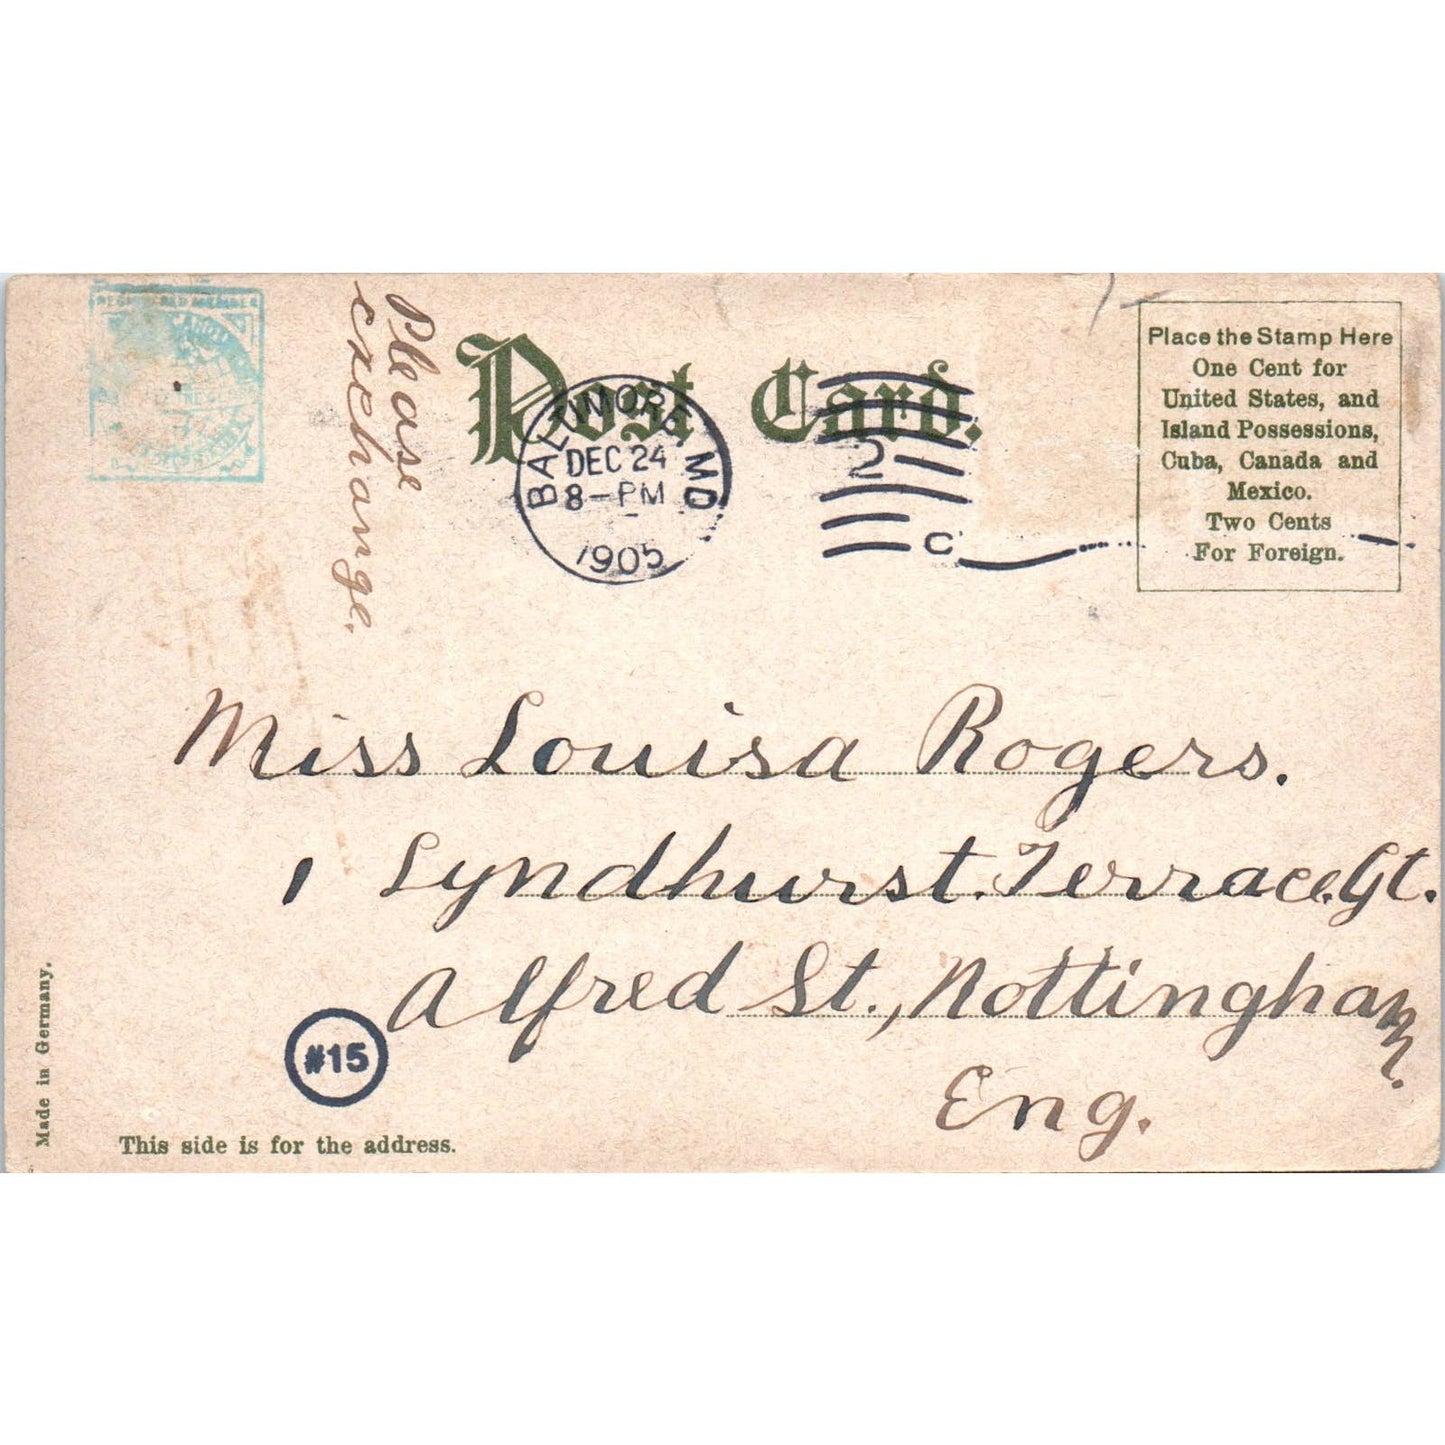 REGISTERED MEMBER
Please
exchange.
Post Card.
BALTIMORE, MD
DEC 24
8-PM
1905
2
C
Place the Stamp Here
One Cent for
United States, and
Island Possessions,
Cuba, Canada and
Mexico.
Two Cents
For Foreign.
Miss Louisa Rogers.
1 Lyndhurst. Terrace. Gt.
Alfred St., Nottingham.
Eng.
#15
Made in Germany.
This side is for the address.